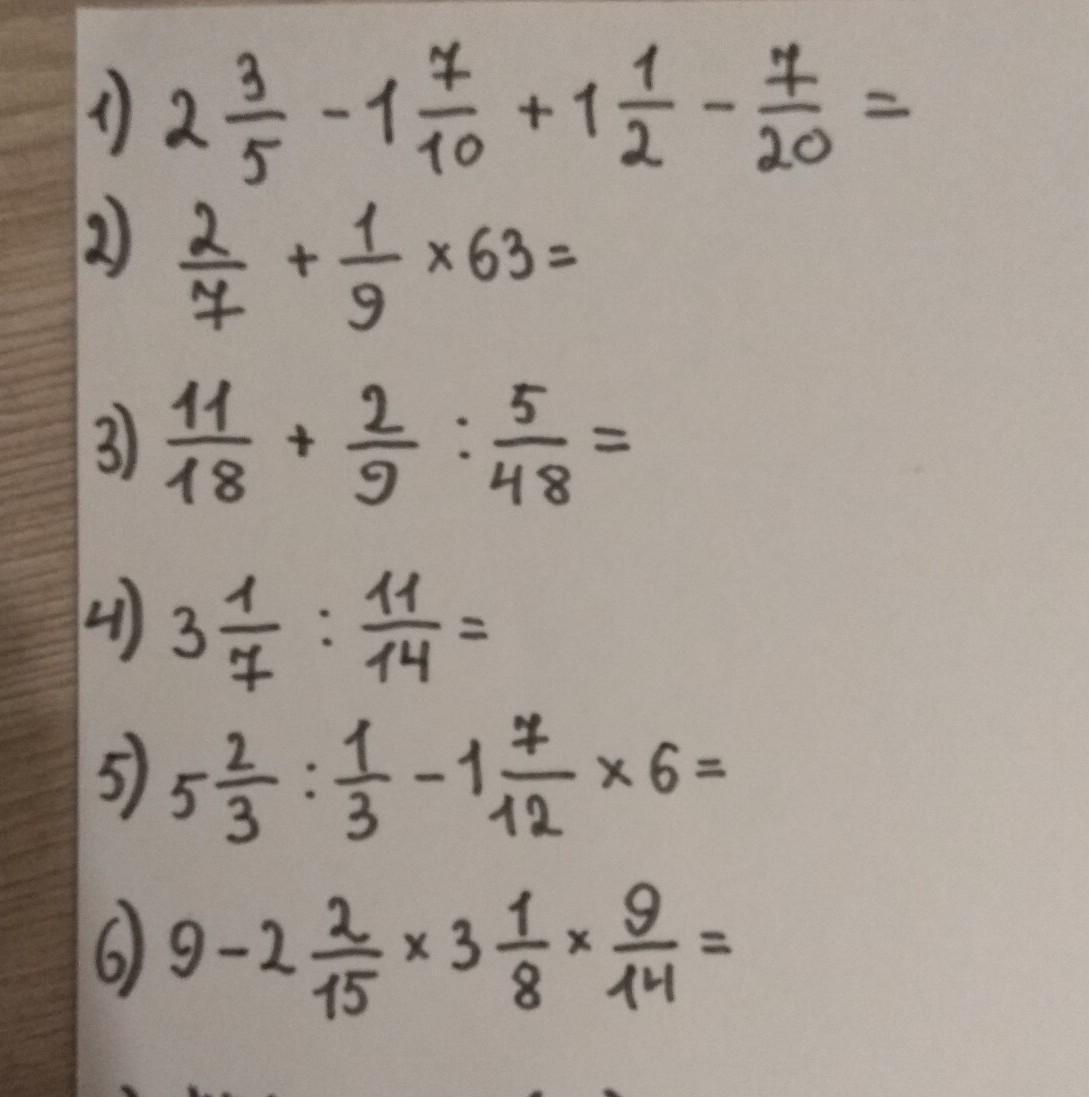 1) 2 3/5 - 1 7/10 + 1 1/2 - 7/20 =
2) 2/7 + 1/9 × 63 =
3) 11/18 + 2/9 : 5/48 =
4) 3 1/7 : 11/14 =
5) 5 2/3 : 1/3 - 1 7/12 × 6 =
6) 9 - 2 2/15 × 3 1/8 × 9/14 =